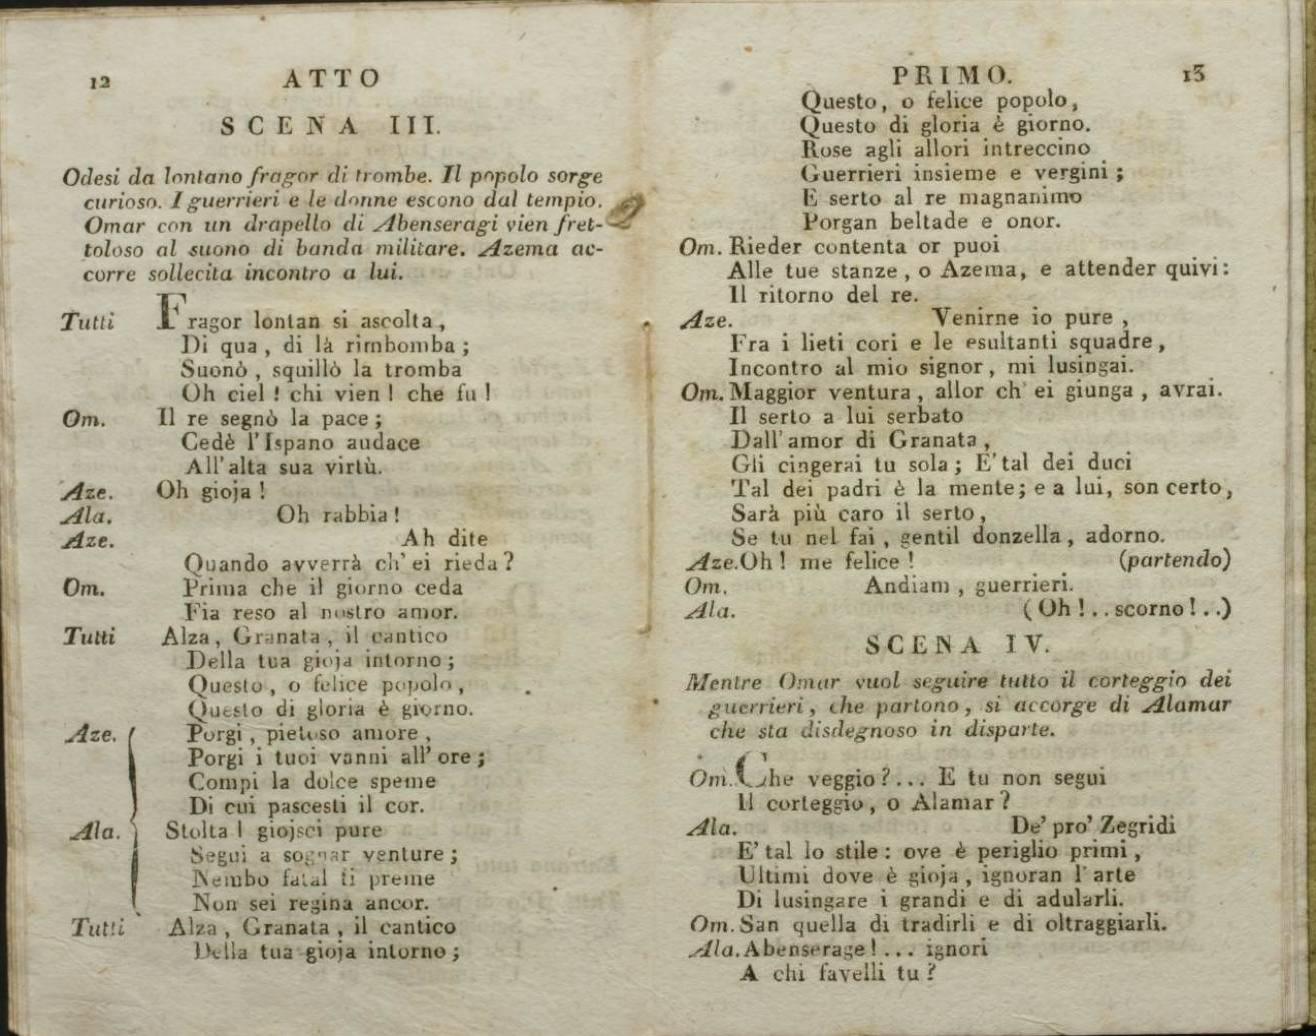 12 ATTO
SCENA III.
Odesi da lontano fragor di trombe. Il popolo sorge
curioso. I guerrieri e le donne escono dal tempio.
Omar con un drapello di Abenseragi vien fret-
toloso al suono di banda militare. Azema ac-
corre sollecita incontro a lui.
Tutti Fragor lontan si ascolta,
Di qua, di là rimbomba;
Suonò, squillò la tromba
Oh ciel! chi vien! che fu!
Om. Il re segnò la pace;
Cedè l'Ispano audace
All'alta sua virtù.
Aze. Oh gioja!
Ala. Oh rabbia!
Aze. Ah dite
Quando avverrà ch'ei rieda?
Om. Prima che il giorno ceda
Fia reso al nostro amor.
Tutti Alza, Granata, il cantico
Della tua gioja intorno;
Questo, o felice popolo,
Questo di gloria è giorno.
Aze. Porgi, pietoso amore,
Porgi i tuoi vanni all'ore;
Compi la dolce speme
Di cui pascesti il cor.
Ala. Stolta! giojsci pure
Segui a sognar venture;
Nembo fatal ti preme
Non sei regina ancor.
Tutti Alza, Granata, il cantico
Della tua gioja intorno;
PRIMO. 13
Questo, o felice popolo,
Questo di gloria è giorno.
Rose agli allori intreccino
Guerrieri insieme e vergini;
E serto al re magnanimo
Porgan beltade e onor.
Om. Rieder contenta or puoi
Alle tue stanze, o Azema, e attender quivi:
Il ritorno del re.
Aze. Venirne io pure,
Fra i lieti cori e le esultanti squadre,
Incontro al mio signor, mi lusingai.
Om. Maggior ventura, allor ch'ei giunga, avrai.
Il serto a lui serbato
Dall'amor di Granata,
Gli cingerai tu sola; E' tal dei duci
Tal dei padri è la mente; e a lui, son certo,
Sarà più caro il serto,
Se tu nel fai, gentil donzella, adorno.
Aze. Oh! me felice! (partendo)
Om. Andiam, guerrieri.
Ala. (Oh!..scorno!..)
SCENA IV.
Mentre Omar vuol seguire tutto il corteggio dei
guerrieri, che partono, si accorge di Alamar
che sta disdegnoso in disparte.
Om. Che veggio?... E tu non segui
Il corteggio, o Alamar?
Ala. De' pro' Zegridi
E' tal lo stile: ove è periglio primi,
Ultimi dove è gioja, ignoran l'arte
Di lusingare i grandi e di adularli.
Om. San quella di tradirli e di oltraggiarli.
Ala. Abenserage!... ignori
A chi favelli tu?